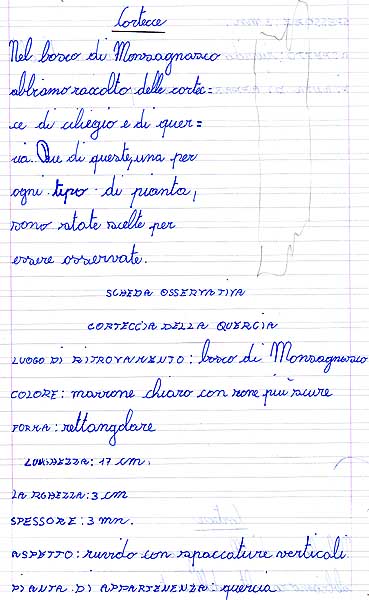 Cortecce
Nel bosco di Monsagnasco
abbiamo raccolto delle cortec=
ce di ciliegio e di quer=
cia. Due di queste, una per
ogni tipo di pianta,
sono state scelte per
essere osservate.
SCHEDA OSSERVATIVA
CORTECCIA DELLA QUERCIA
LUOGO DI RITROVAMENTO: bosco di Monsagnasco
COLORE: marrone chiaro con zone più scure
FORMA: rettangolare
LUNGHEZZA: 17 cm.
LARGHEZZA: 3 cm
SPESSORE: 3 mm.
ASPETTO: ruvido con spaccature verticali
PIANTA DI APPARTENENZA: quercia